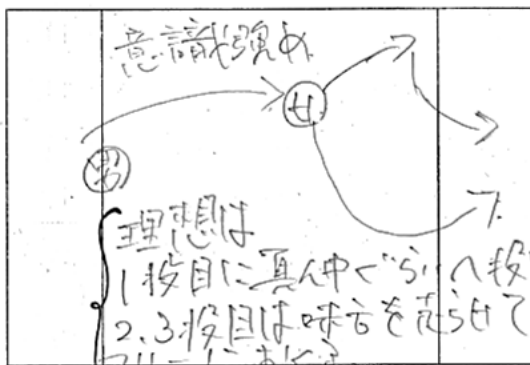 意識強め
女
男
理想は
1投目に真ん中ぐらいへ投
2、3投目は味方を走らせて